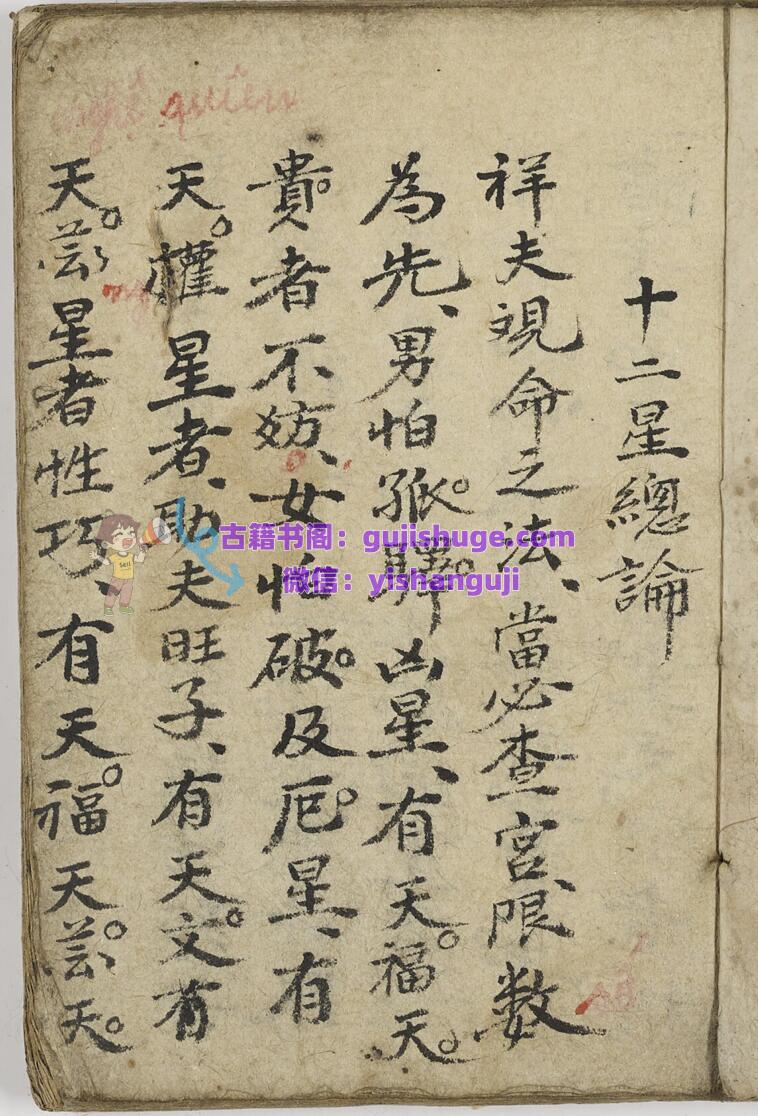 十二星總論
祥夫視命之法、當必查宮限數
為先、男怕孤。驛。凶星、有天。福天。
貴。者不妨、女怕破。及厄。星、有
天。權星者、助夫旺子、有天。文。有
天。芸星者性巧、有天。福天。芸。天。
古籍书阁：gujishuge.com
微信：yishanguji